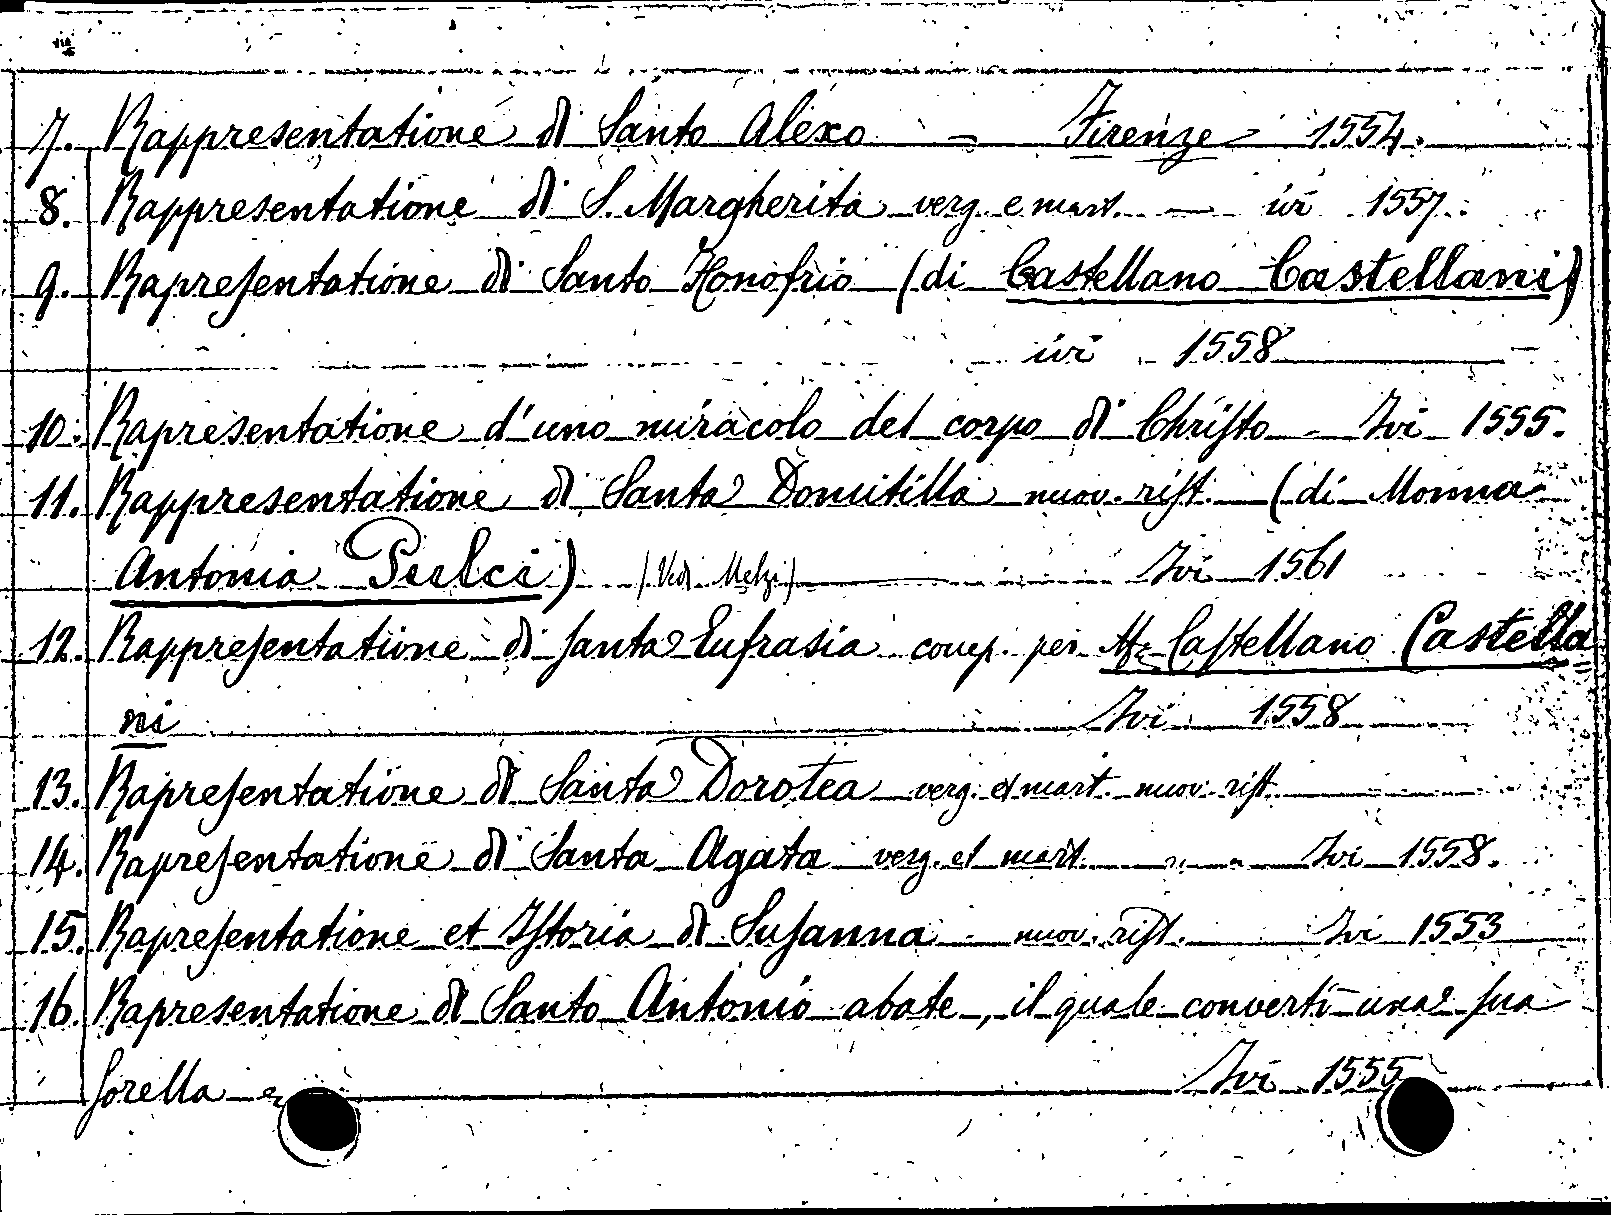 7. Rappresentatione di Santo Alexo — Firenze - 1554.
8. Rappresentatione di S. Margherita verg. e mart. — ivi 1557.
9. Rapreſentatione di Santo Honofrio (di Castellano Castellani)
ivi 1558
10. Rapresentatione d'uno miracolo del corpo di Chriſto - Ivi 1555.
11. Rappresentatione di Santa Domitilla nuov. riſt. (di Monna
Antonia Pulci) (Ved. Melzi) Ivi 1561
12. Rappreſentatione di ſanta Eufrasia comp. per Mr Caſtellano Castella
ni Ivi 1558
13. Rapreſentatione di Santa Dorotea verg. et mart. nuov. riſt.
14. Rapreſentatione di Santa Agata verg. et mart. " " Ivi 1558.
15. Rapreſentatione et Iſtoria di Suſanna - nuov. riſt. Ivi 1553
16. Rapresentatione di Santo Antonio abate, il quale converti una ſua
ſorella Ivi 1555